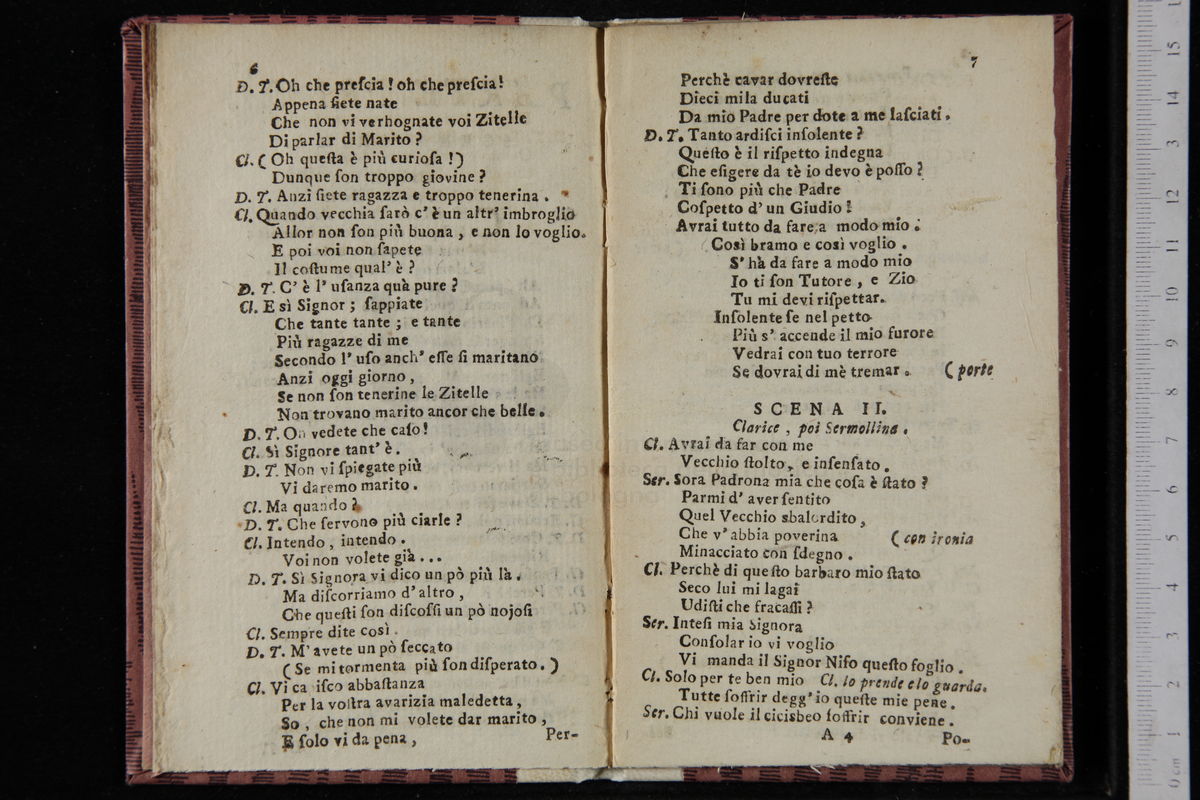 6
D. T. Oh che preſcia! oh che preſcia!
Appena ſiete nate
Che non vi verhognate voi Zitelle
Di parlar di Marito?
Cl. (Oh queſta è più curioſa!)
Dunque ſon troppo giovine?
D. T. Anzi ſiete ragazza e troppo tenerina.
Cl. Quando vecchia ſarò c'è un altr' imbroglio
Allor non ſon più buona, e non lo voglio.
E poi voi non ſapete
Il coſtume qual' è?
D. T. C' è l' uſanza quà pure?
Cl. E sì Signor; ſappiate
Che tante tante; e tante
Più ragazze di me
Secondo l' uſo anch' eſſe ſi maritano
Anzi oggi giorno,
Se non ſon tenerine le Zitelle
Non trovano marito ancor che belle.
D. T. Oh vedete che caſo!
Cl. Sì Signore tant' è.
D. T. Non vi ſpiegate più
Vi daremo marito.
Cl. Ma quando?
D. T. Che ſervono più ciarle?
Cl. Intendo, intendo.
Voi non volete già...
D. T. Sì Signora vi dico un pò più là.
Ma diſcorriamo d' altro,
Che queſti ſon diſcoſſi un pò nojoſi
Cl. Sempre dite così.
D. T. M' avete un pò ſeccato
(Se mi tormenta più ſon diſperato.)
Cl. Vi ca iſco abbaſtanza
Per la voſtra avarizia maledetta,
So, che non mi volete dar marito,
E ſolo vi da pena,
Per-
7
Perchè cavar dovreſte
Dieci mila ducati
Da mio Padre per dote a me laſciati.
D. T. Tanto ardiſci inſolente?
Queſto è il riſpetto indegna
Che eſigere da tè io devo è poſſo?
Ti ſono più che Padre
Coſpetto d' un Giudio!
Avrai tutto da fare a modo mio.
Così bramo e così voglio.
S' hà da fare a modo mio
Io ti ſon Tutore, e Zio
Tu mi devi riſpettar.
Inſolente ſe nel petto
Più s' accende il mio furore
Vedrai con tuo terrore
Se dovrai di mè tremar. (parte
SCENA II.
Clarice, poi Sermollina.
Cl. Avrai da far con me
Vecchio ſtolto, e inſenſato.
Ser. Sora Padrona mia che coſa è ſtato?
Parmi d' aver ſentito
Quel Vecchio sbalordito,
Che v' abbia poverina (con ironia
Minacciato con ſdegno.
Cl. Perchè di queſto barbaro mio ſtato
Seco lui mi lagai
Udiſti che fracaſſi?
Ser. Inteſi mia Signora
Conſolar io vi voglio
Vi manda il Signor Niſo queſto foglio.
Cl. Solo per te ben mio Cl. lo prende e lo guarda.
Tutte ſoffrir degg' io queſte mie pene.
Ser. Chi vuole il cicisbeo ſoffrir conviene.
A 4
Po-